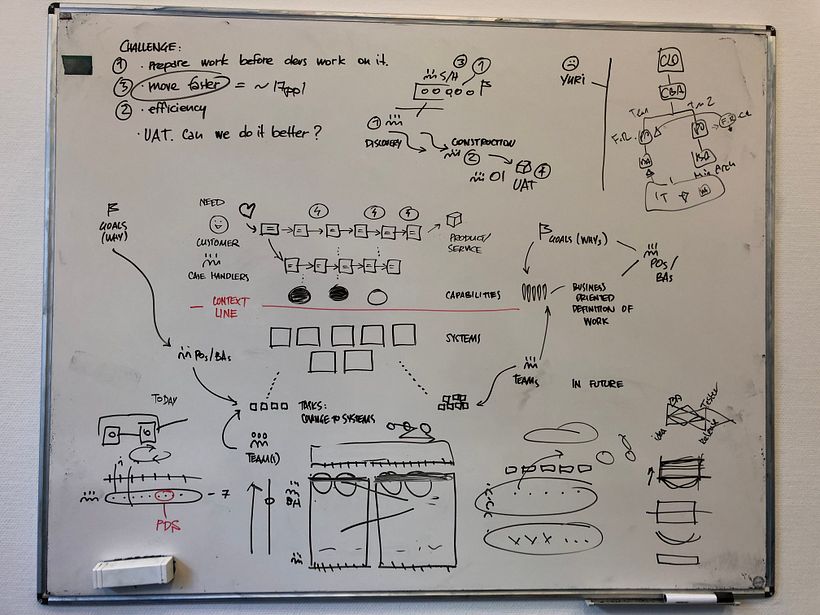 CHALLENGE:
① · PREPARE WORK BEFORE DEVS WORK ON IT.
③ · MOVE FASTER = ~ 17ppl
② · EFFICIENCY
· UAT. CAN WE DO IT BETTER?
③ ①
S/H
①
DISCOVERY
CONSTRUCTION
②
UAT
④
YURI
CBA
F.R.
BA
IT
GOALS
(WHY)
NEED
CUSTOMER
CASE HANDLERS
④ ④
PRODUCT/
SERVICE
GOALS (WHYS)
POs/
BAs
CAPABILITIES
BUSINESS
ORIENTED
DEFINITION OF
WORK
CONTEXT
LINE
SYSTEMS
POs/BAs
TEAMS
IN FUTURE
TODAY
TASKS:
CHANGE TO SYSTEMS
TEAM(S)
BA
Tester
idea
Release
- 7
PDS
BA
X X X ...